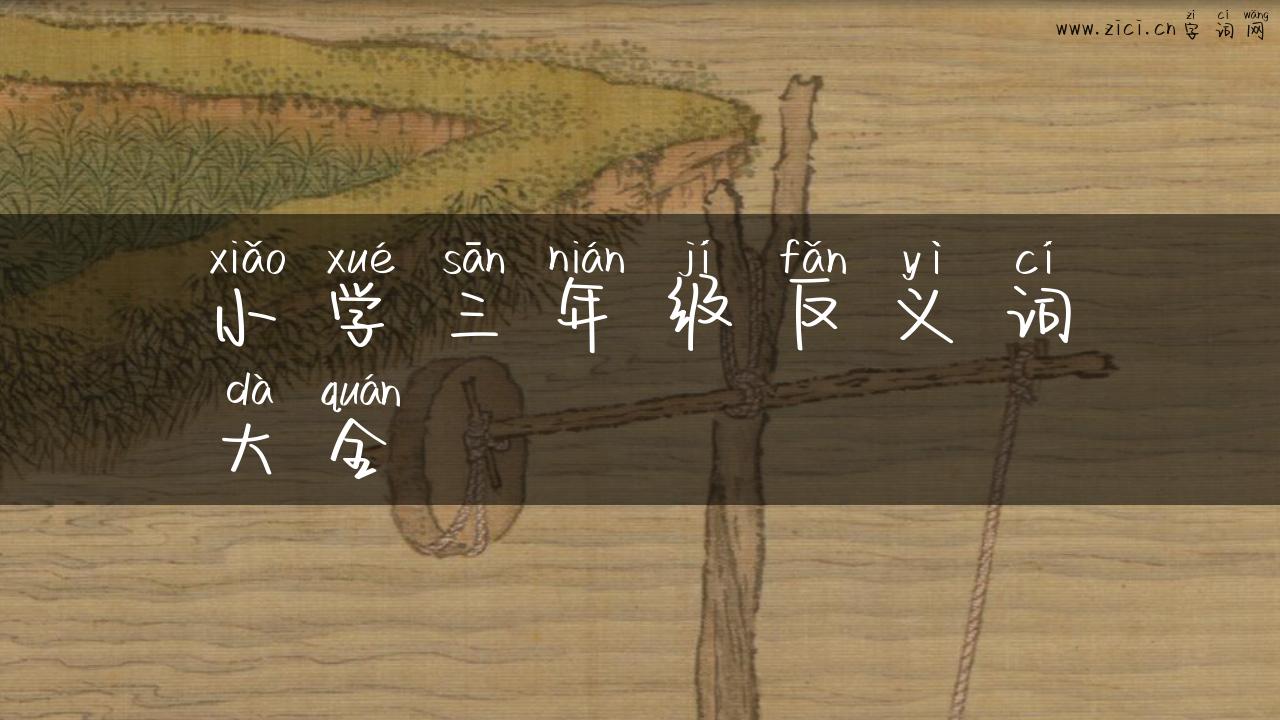 zì cí wǎng
www.zici.cn 字 词 网
xiǎo xué sān nián jí fǎn yì cí
小 学 三 年 级 反 义 词
dà quán
大 全